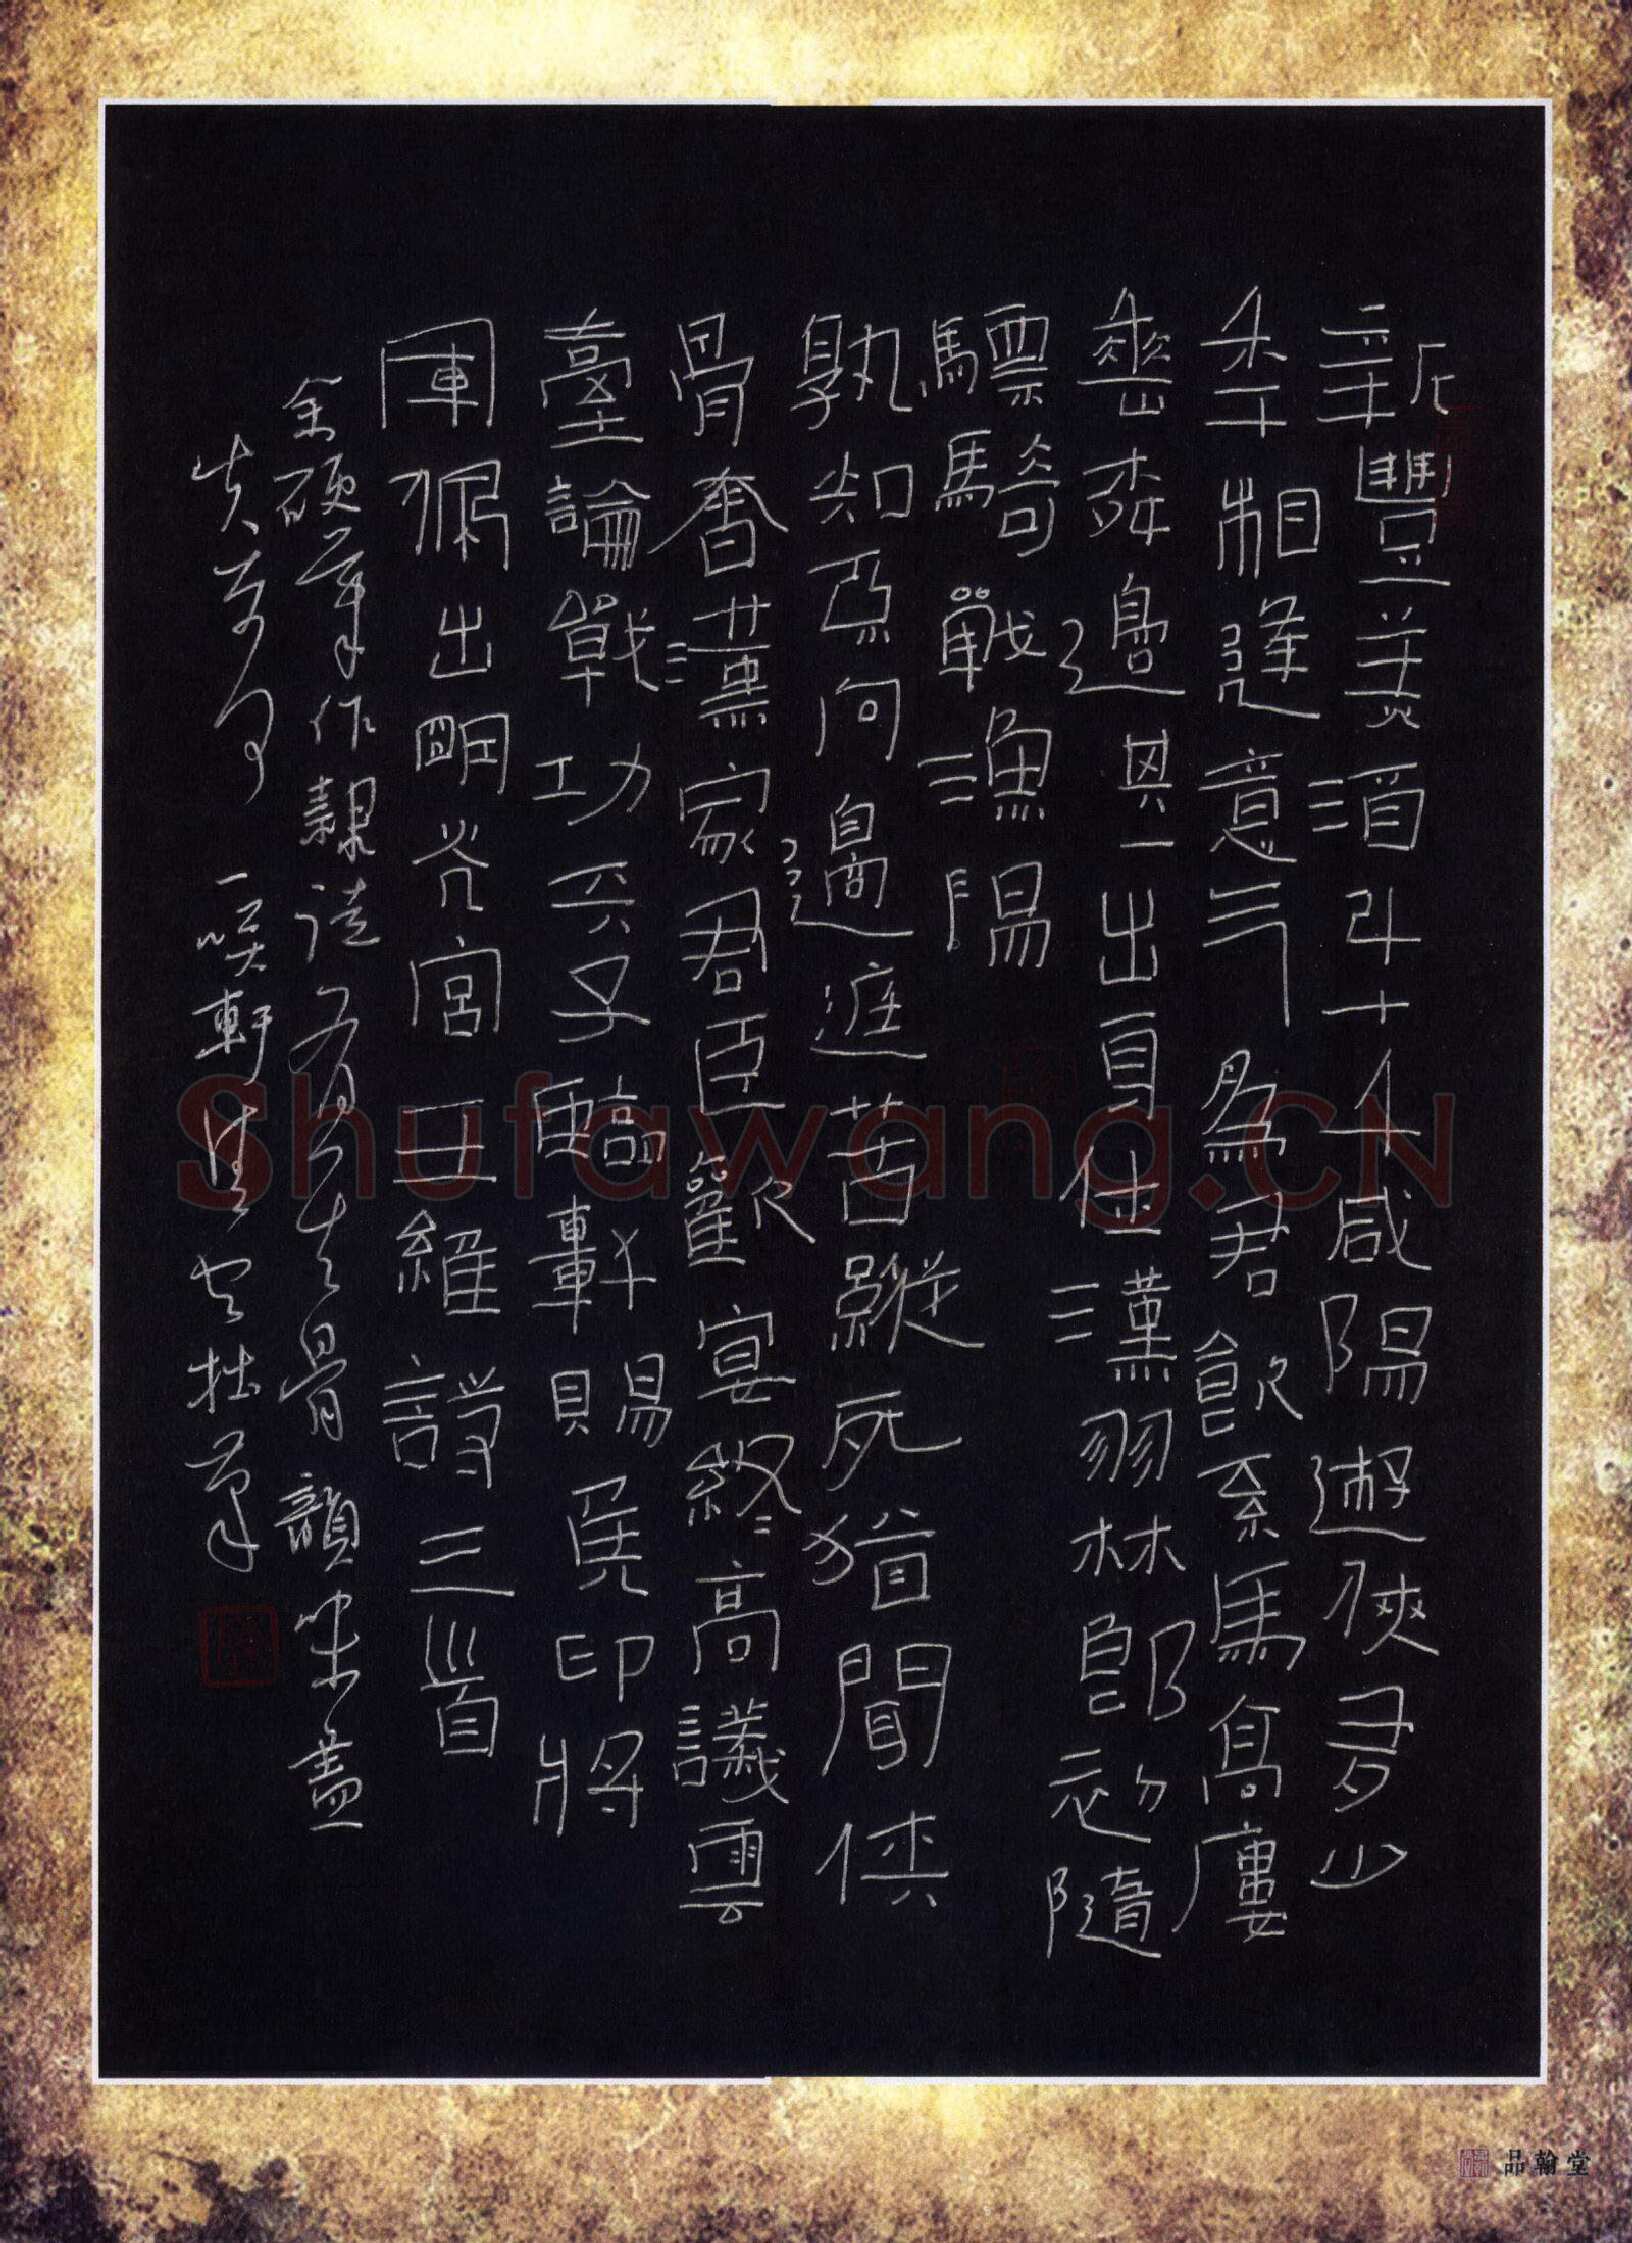 新豐美酒斗十千咸陽遊俠多少
年相逢意氣為君飲系馬高廔
垂柳邊其一出身仕漢羽林郎初隨
驃騎戰漁陽
孰知不向邊庭苦縱死猶聞俠
骨香漢家君臣歡宴終高議雲
臺論戰功天子臨軒賜侯印將
軍佩出明光宮王維詩三首
余硬筆作隸骨韻味蓋
失一笑軒拙筆
品翰堂
Shufawang.CN